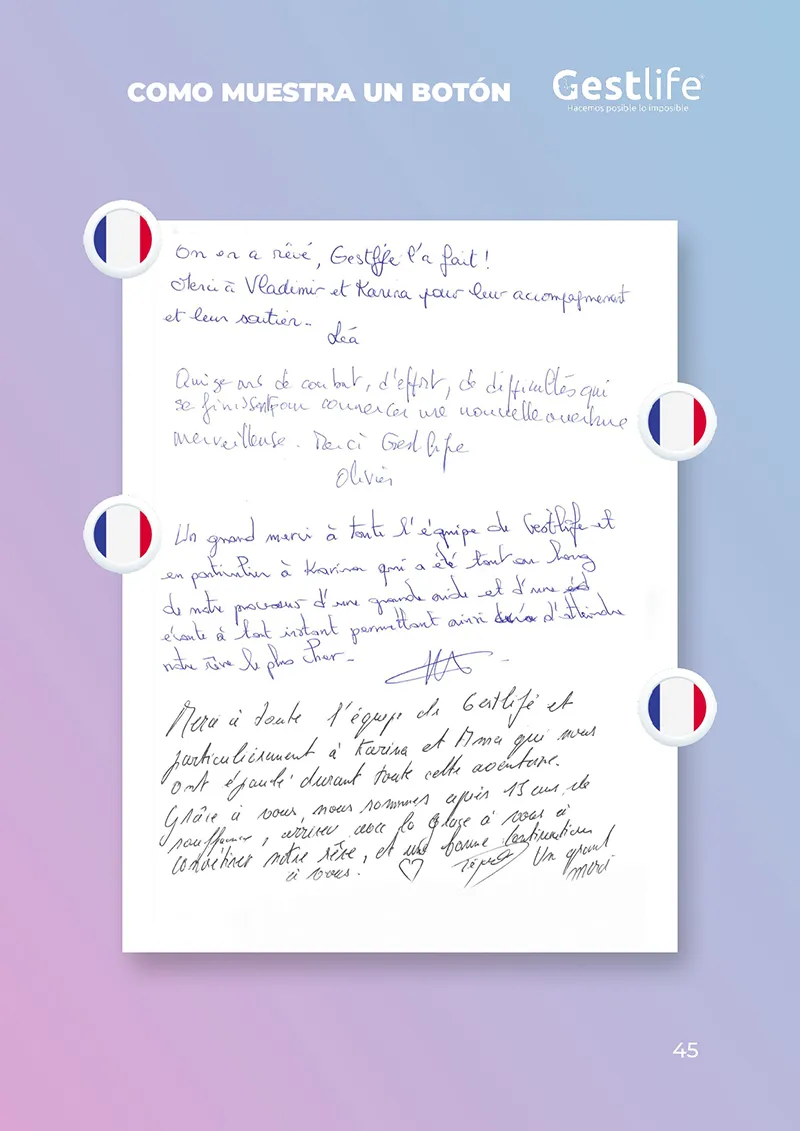 COMO MUESTRA UN BOTÓN
Gestlife
Hacemos posible lo imposible
On en a rêvé, Gestlife l'a fait!
Merci à Vladimir et Karina pour leur accompagnement
et leur soutien.
Léa
Quinze ans de combat, d'effort, de difficultés qui
se finissent pour commencer une nouvelle ouverture
merveilleuse. Merci Gestlife
Olivier
Un grand merci à toute l'équipe de Gestlife et
en particulier à Karina qui a été tout au long
de notre processus d'une grande aide et d'une
écoute à tout instant permettant ainsi d'atteindre
notre rêve le plus cher.
Merci à toute l'équipe de Gestlife et
particulièrement à Karina et Anna qui nous
ont épaulé durant toute cette aventure.
Grâce à vous, nous sommes après 13 ans de
souffrance, arriver à vous à
concrétiser notre rêve, et une bonne continuation
à vous. Un grand
merci
45